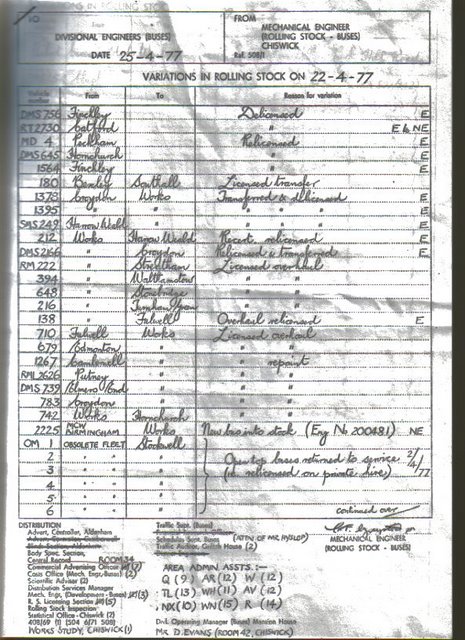 TO
DIVISIONAL ENGINEERS (BUSES)
DATE 25-4-77
FROM
MECHANICAL ENGINEER
(ROLLING STOCK - BUSES)
CHISWICK
Ref. 508/1
VARIATIONS IN ROLLING STOCK ON 22-4-77
Vehicle number From To Reason for variation
DMS 756 Finchley Delicensed E
RT 2730 Catford " E & NE
MD 4 Peckham Relicensed E
DMS 645 Hornchurch " E
1564 Finchley " E
180 Bexley Southall Licensed transfer
1375 Croydon Works Transferred & delicensed E
1395 " " " " " E
SMS 249 Harrow Weald " " " " E
212 Works Harrow Weald Recert. relicensed E
DMS 2166 " Croydon Relicensed & transferred E
RM 222 " Streatham Licensed overhaul
394 " Walthamstow " "
648 " Stonebridge " "
216 " "
138 " Fulwell Overhaul relicensed E
710 Fulwell Works Licensed overhaul
679 Edmonton " " "
1267 Camberwell " " repaint
RML 2626 Putney " " "
DMS 739 Elmers End " " "
783 Croydon " " "
742 Works Hornchurch " "
2225 MCW BIRMINGHAM Works New bus into stock (Eng No 200481) NE
OM 1 OBSOLETE FLEET Stockwell
2 " " " Open top buses returned to service 2/4/77
3 " " " (i.e. relicensed on private hire)
4 " " "
5 " " "
6 " " " continued over
DISTRIBUTION
Advert. Controller, Aldenham
Body Spec. Section,
Central Record ROOM 34
Commercial Advertising Officer
Costs Office (Mech. Engr.-Buses) (2)
Scientific Adviser (2)
Distribution Services Manager
Mech. Engr. (Development - Buses) (3)
R. S. Licensing Section (5)
Rolling Stock Inspection
Statistical Office - Chiswick (2)
408/69 (1) 504 6/71 508)
WORKS STUDY, CHISWICK (1)
Traffic Supt. (Buses)
Schedules Supt. (Buses) (ATTN OF MR HYSLOP)
Traffic Auditor, Griffith House (2)
AREA ADMIN ASSTS :-
Q (9) AR (12) W (12)
TL (13) WH (11) AV (12)
NX (10) WN (15) R (14)
Divl. Operating Manager (Buses) Mansion House
MR D. EVANS (ROOM 42, CHISWICK)
MECHANICAL ENGINEER
(ROLLING STOCK - BUSES)